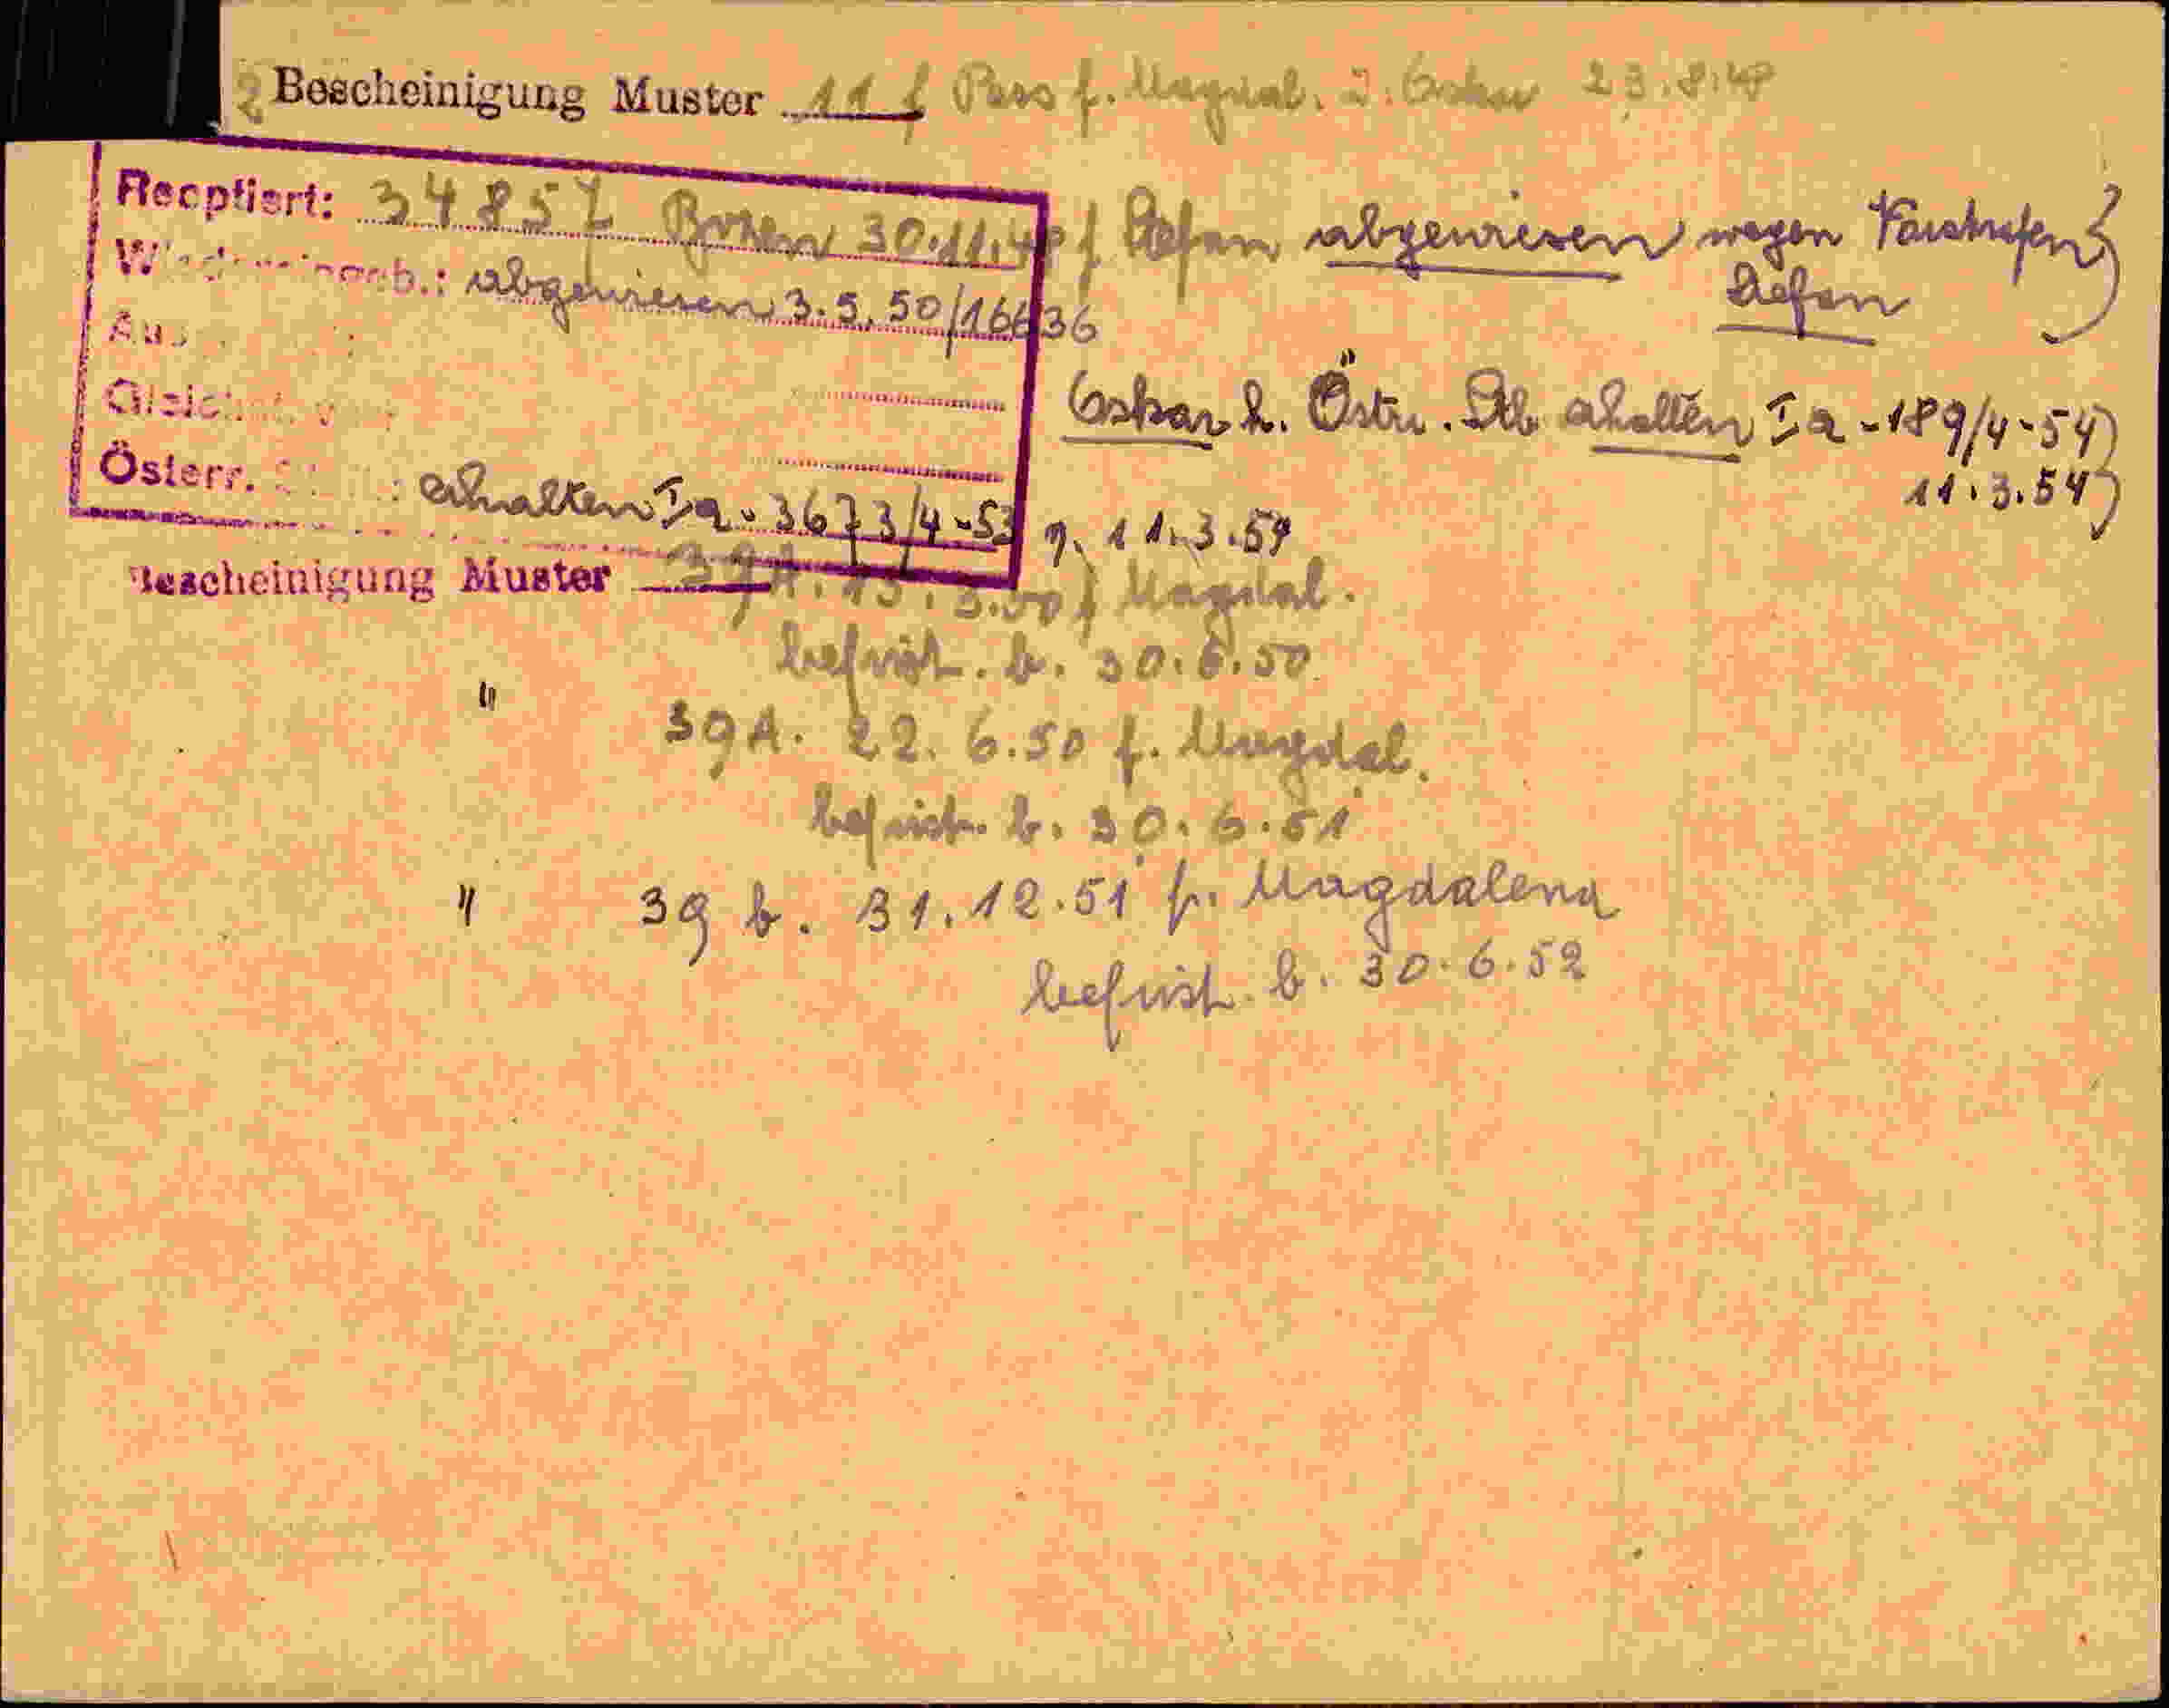 2 Bescheinigung Muster 11 f Pass f. Magdal. 2. Oskar 23.8.48
Reoptiert: 34857 Bozen 30.11.48 f Stefan abgewiesen wegen Vorstrafen
Stefan
abgewiesen 3.5.50/16636
Oskar h. Östr. Stb erhalten Ia-189/4-54
11.3.54
Österr. erhalten Ia-3673/4-53 v. 11.3.54
Bescheinigung Muster 39A. 15.3.50 f Magdal.
befrist. b. 30.6.50
" 39A. 22.6.50 f. Magdal.
befrist. b. 30.6.51
" 39 b. 31.12.51 f. Magdalena
befrist. b. 30.6.52